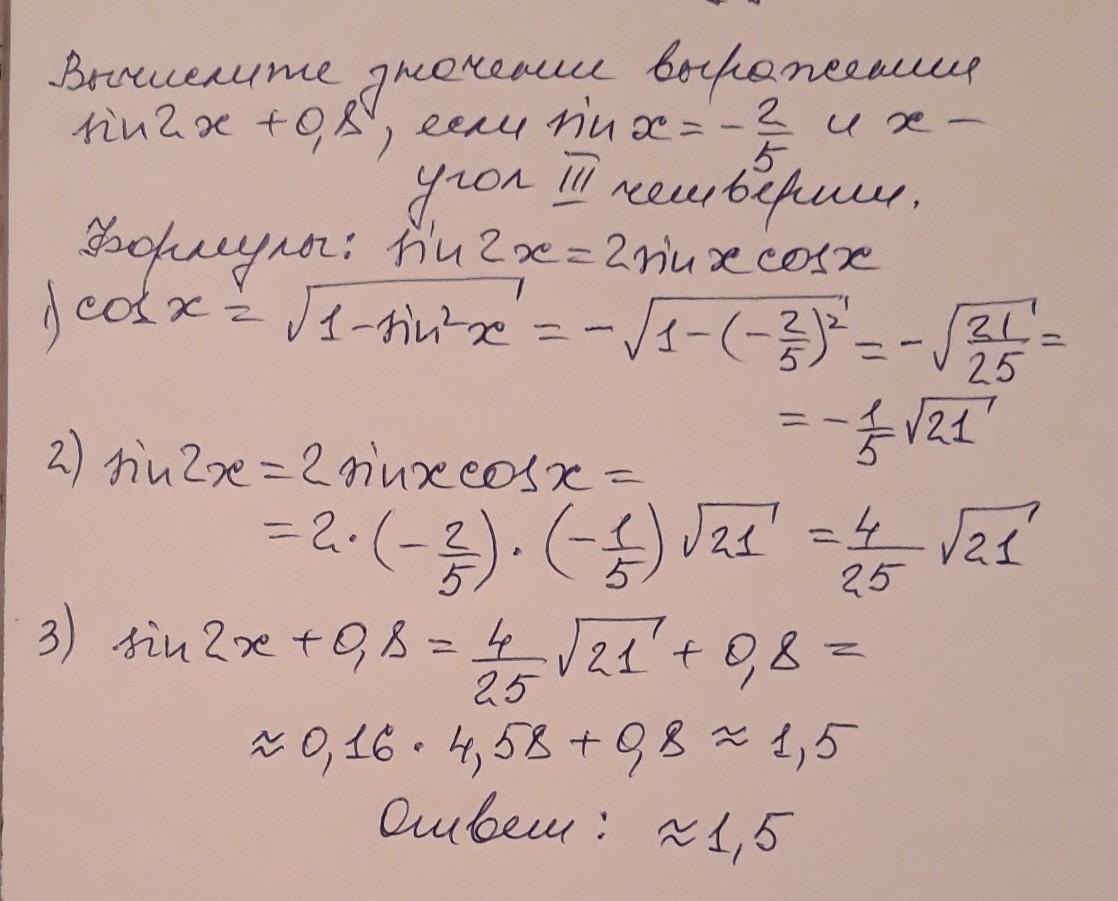 Вычислите значение выражения
sin2x + 0,8, если sin x = -2/5 и x -
угол III четверти.
Формулы: sin 2x = 2sin x cos x
1) cos x = √(1 - sin²x) = -√(1 - (-2/5)²) = -√(21/25) =
= -1/5 √21
2) sin 2x = 2 sin x cos x =
= 2 · (-2/5) · (-1/5) √21 = 4/25 √21
3) sin 2x + 0,8 = 4/25 √21 + 0,8 =
≈ 0,16 · 4,58 + 0,8 ≈ 1,5
Ответ: ≈ 1,5